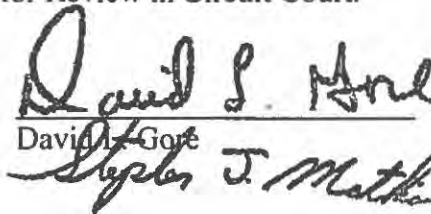 for Review in Circuit Court.
David L. Gore
David L. Gore
Stephen J. Mathis